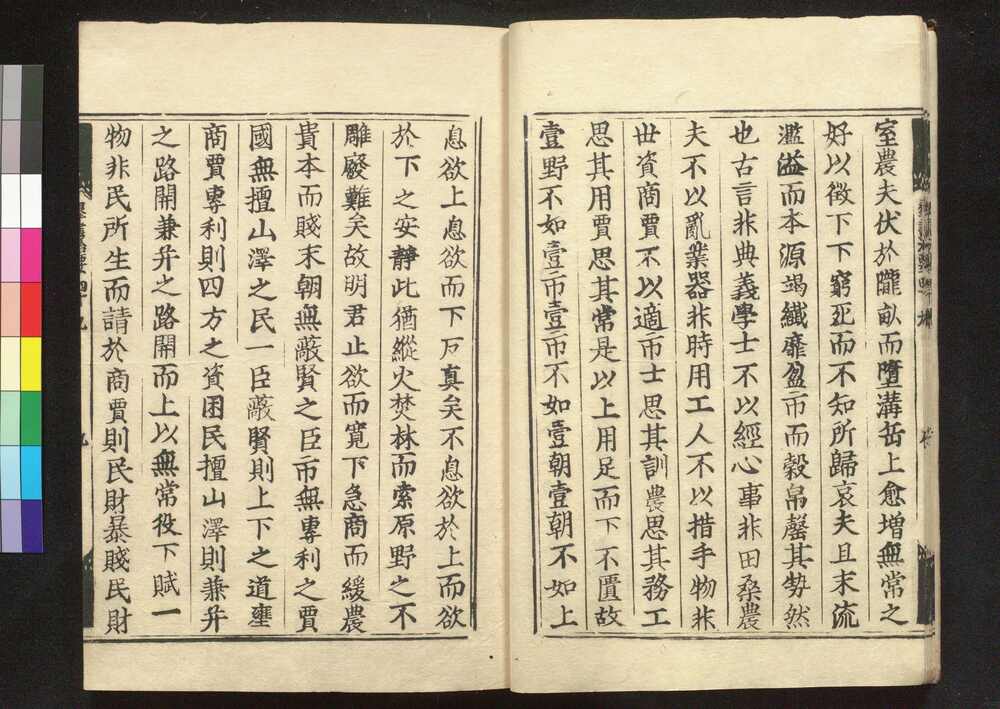 室農夫伏於隴畝而墮溝岳上愈增無常之
好以徵下下窮死而不知所歸哀夫且末流
濫溢而本源竭纖靡盈市而穀帛罄其勢然
也古言非典義學士不以經心事非田桑農
夫不以亂業器非時用工人不以措手物非
世資商賈不以適市士思其訓農思其務工
思其用賈思其常是以上用足而下不匱故
壹野不如壹市壹市不如壹朝壹朝不如上
息欲上息欲而下反真矣不息欲於上而欲
於下之安靜此猶縱火焚林而索原野之不
雕廢難矣故明君止欲而寬下急商而緩農
貴本而賤末朝無蔽賢之臣市無專利之賈
國無擅山澤之民一臣蔽賢則上下之道壅
商賈專利則四方之資困民擅山澤則兼并
之路開兼并之路開而上以無常役下賦一
物非民所生而請於商賈則民財暴賤民財